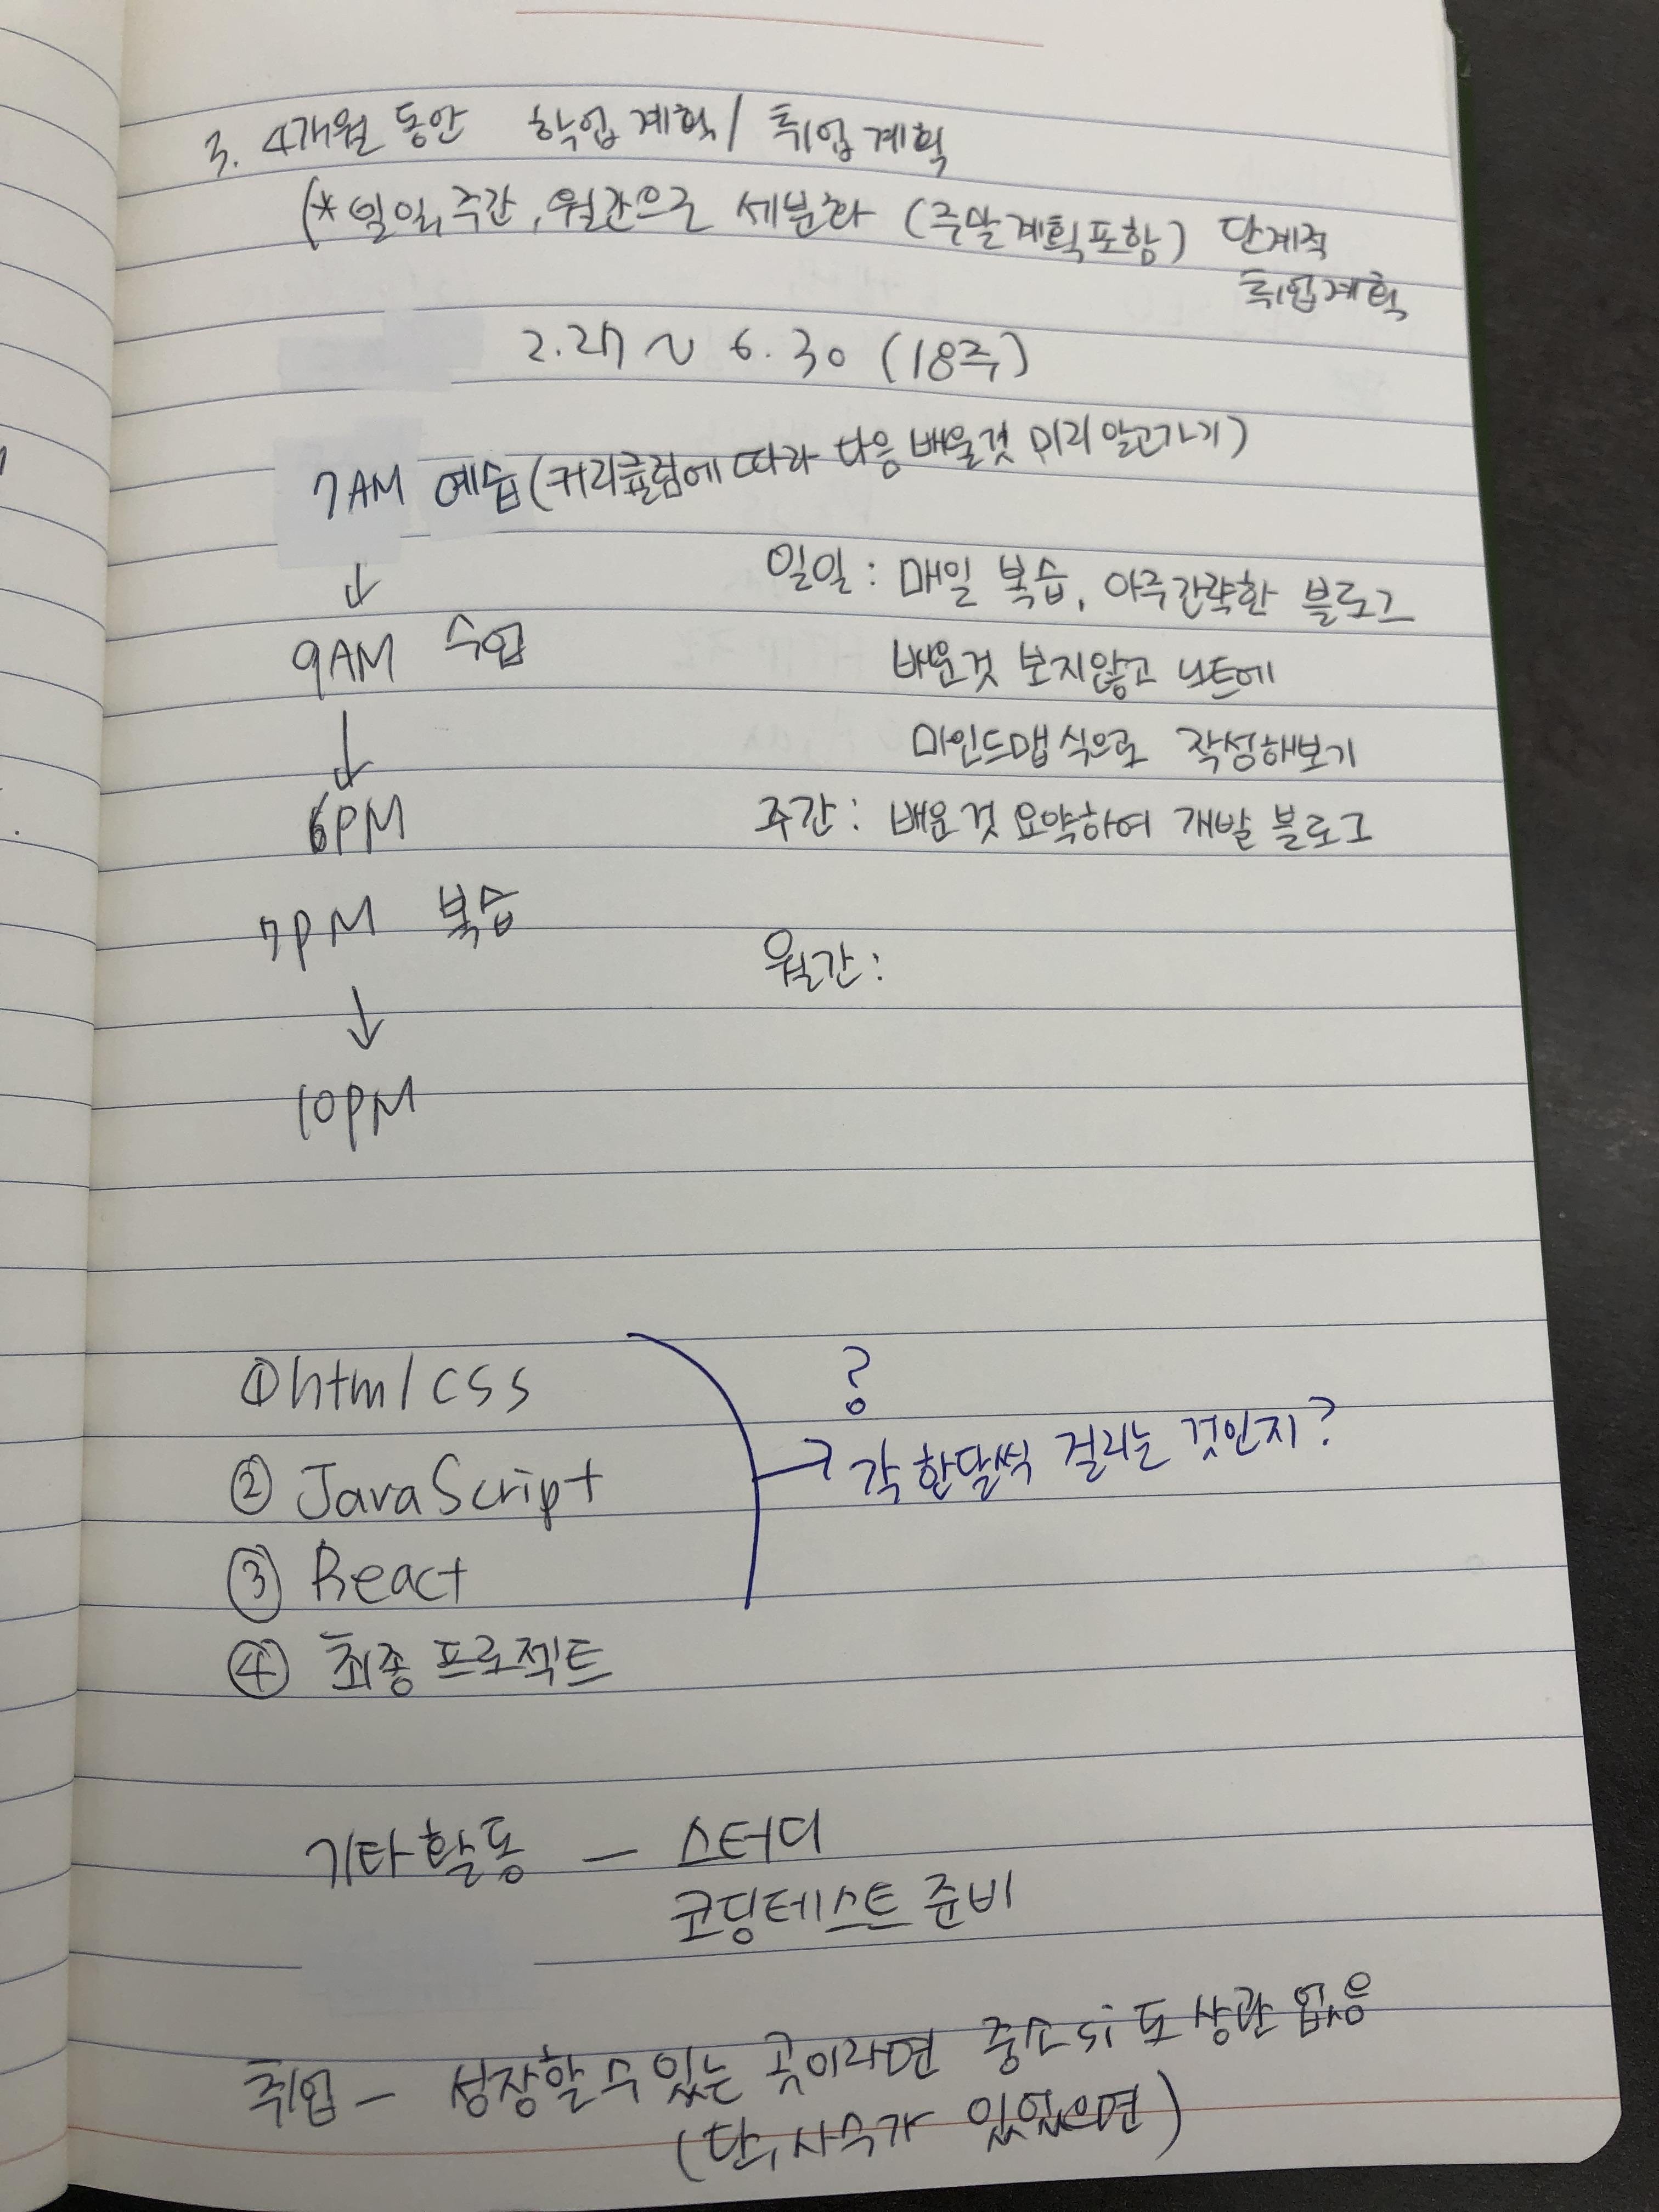 3. 4개월 동안 학업계획/ 취업계획
(* 일일,주간,월간으로 세분화 (주말계획포함) 단계적
취업계획
2.27 ~ 6.30 (18주)
7AM 예습(커리큘럼에 따라 다음 배울것 미리 알고가기)
↓
9AM 수업
↓
6PM
7PM 복습
↓
10PM
일일 : 매일 복습, 아주간략한 블로그
배운것 보지않고 노트에
마인드맵 식으로 작성해보기
주간 : 배운것 요약하여 개발 블로그
월간 :
① html/css
② JavaScript
③ React
④ 최종 프로젝트
?
→ 각 한달씩 걸리는 것인지?
기타활동 – 스터디
코딩테스트 준비
취업 – 성장할수있는 곳이라면 중소여도 상관 없음
(단, 사수가 있었으면)